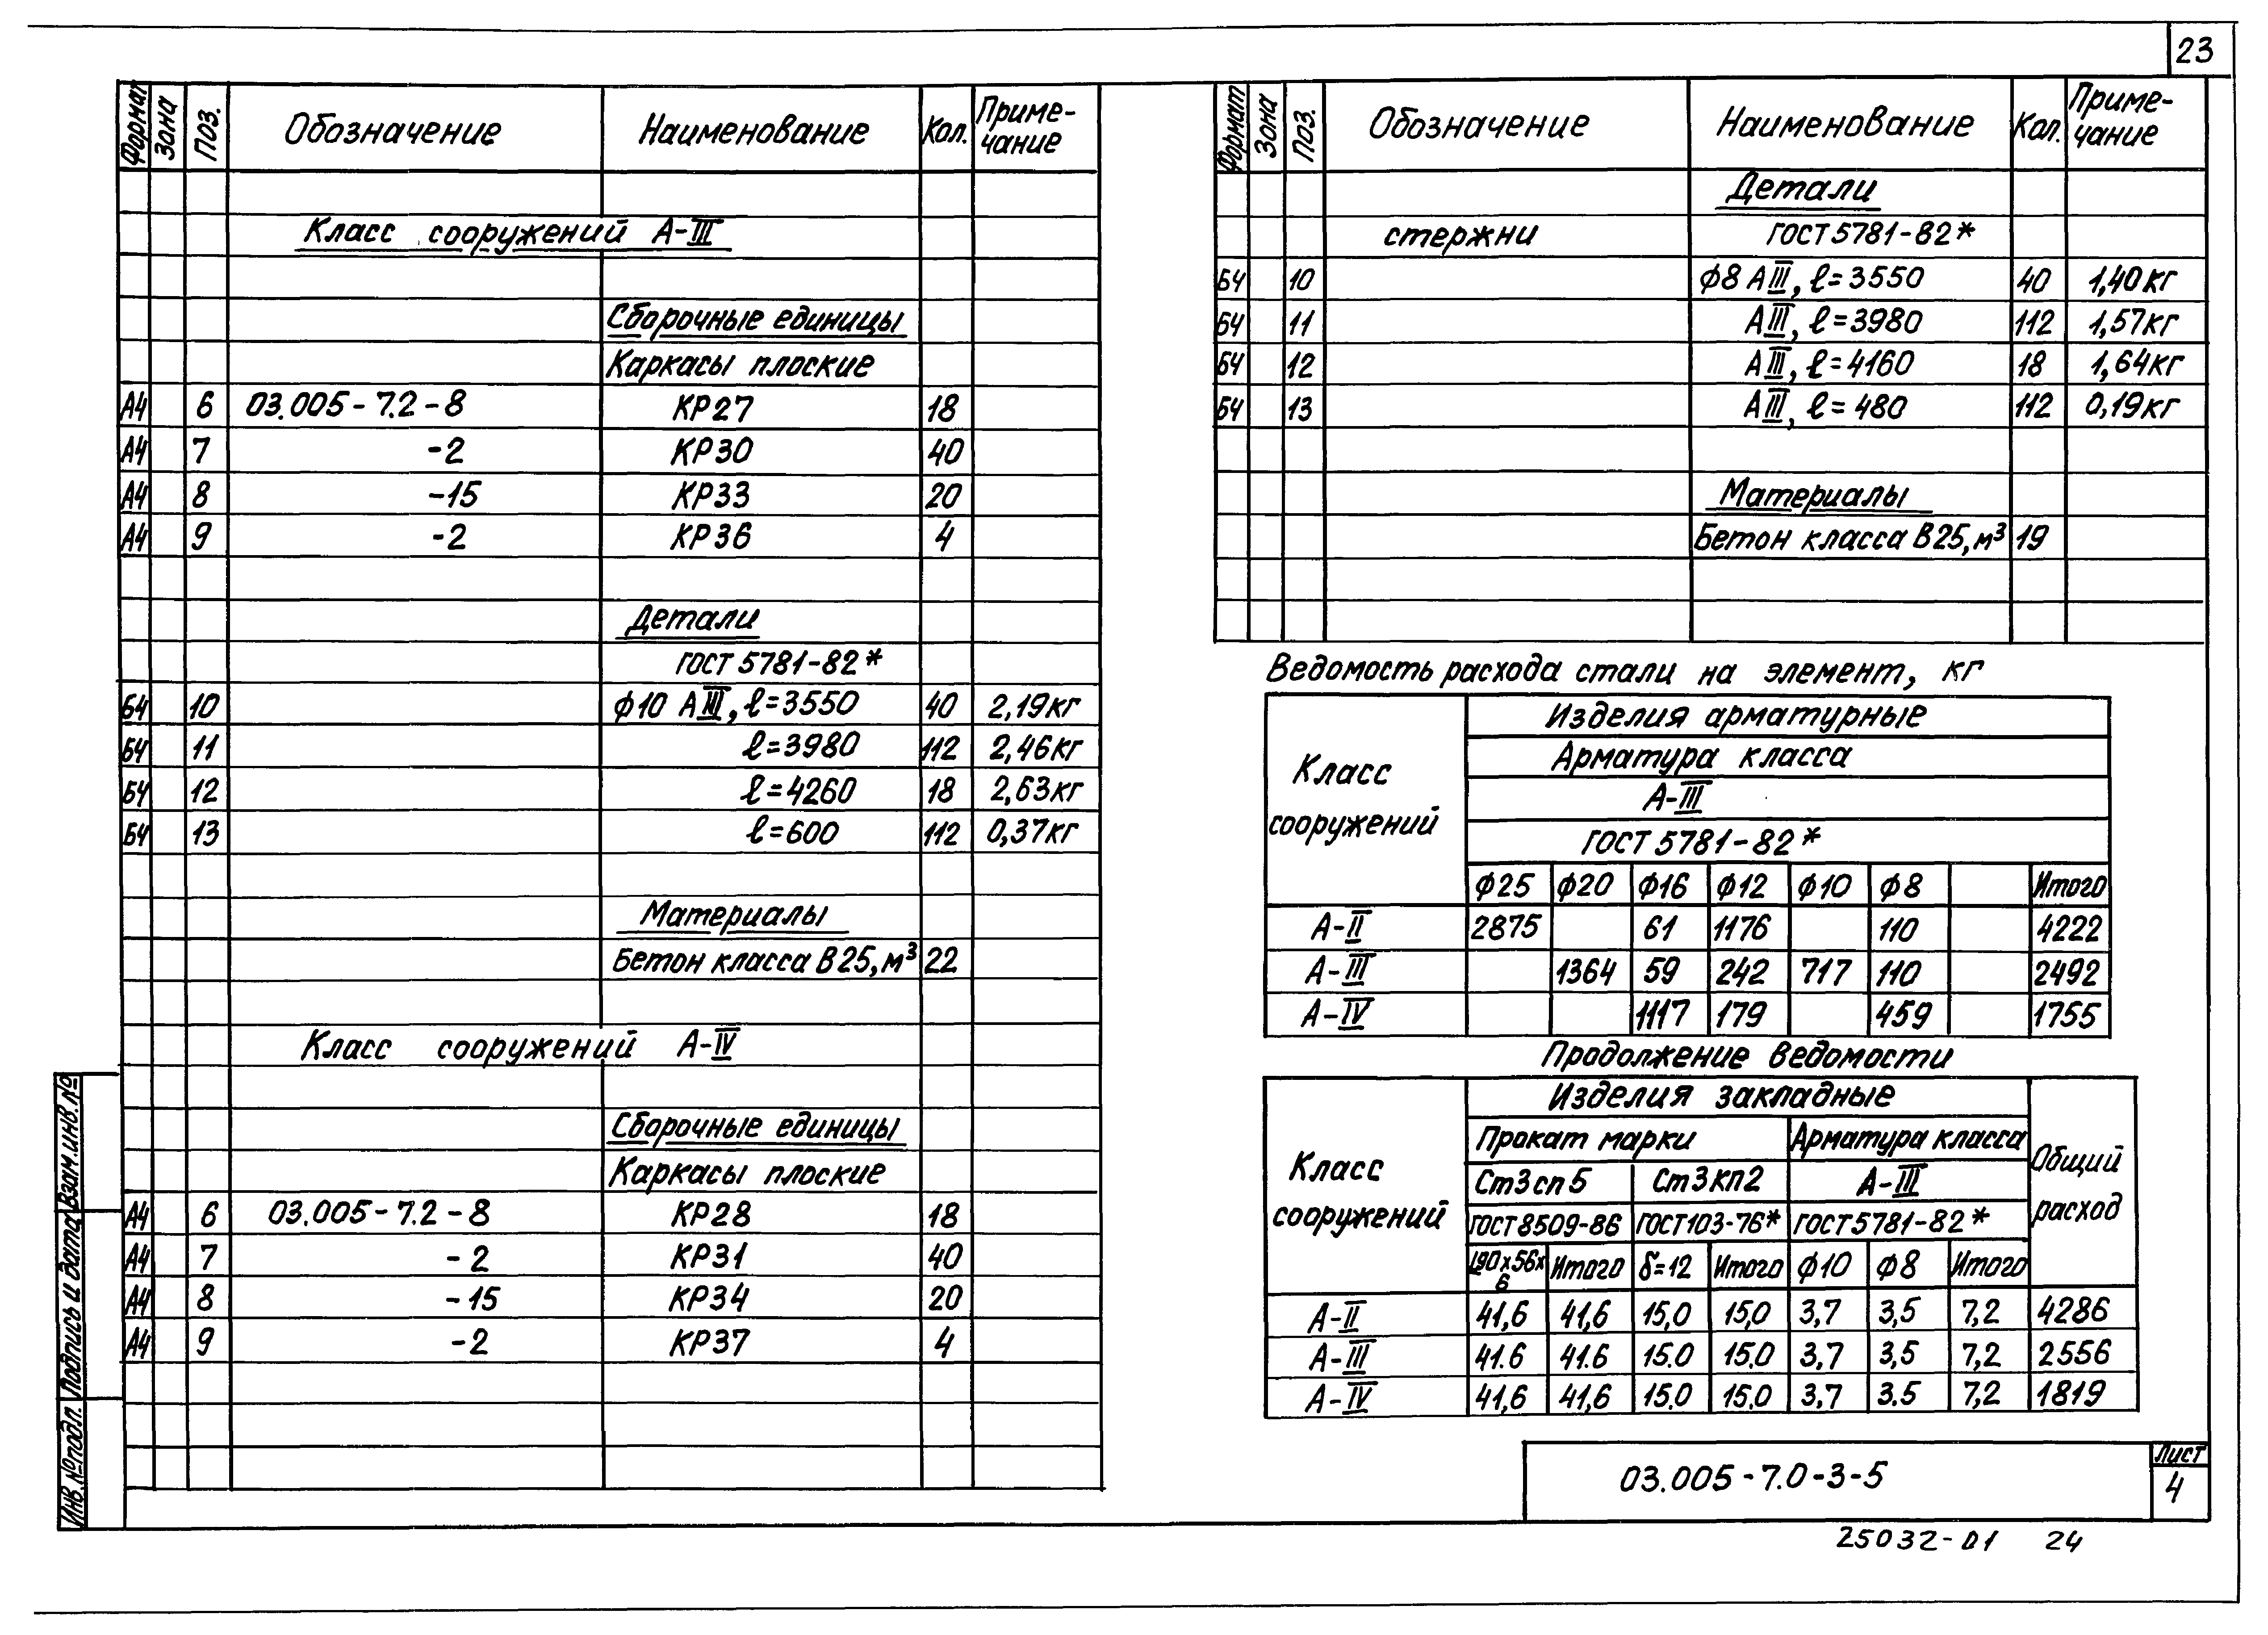 23
Формат Зона Поз. Обозначение Наименование Кол. Приме-чание
Класс сооружений А-III
Сборочные единицы
Каркасы плоские
А4 6 03.005-7.2-8 КР27 18
А4 7 -2 КР30 40
А4 8 -15 КР33 20
А4 9 -2 КР36 4
Детали
ГОСТ 5781-82*
БЧ 10 ф10 АIII, ℓ=3550 40 2,19кг
БЧ 11 ℓ=3980 112 2,46кг
БЧ 12 ℓ=4260 18 2,63кг
БЧ 13 ℓ=600 112 0,37кг
Материалы
Бетон класса В25, м³ 22
Класс сооружений А-IV
Сборочные единицы
Каркасы плоские
А4 6 03.005-7.2-8 КР28 18
А4 7 -2 КР31 40
А4 8 -15 КР34 20
А4 9 -2 КР37 4
Формат Зона Поз. Обозначение Наименование Кол. Приме-чание
Детали
стержни ГОСТ 5781-82*
БЧ 10 ф8 АIII, ℓ=3550 40 1,40кг
БЧ 11 АIII, ℓ=3980 112 1,57кг
БЧ 12 АIII, ℓ=4160 18 1,64кг
БЧ 13 АIII, ℓ=480 112 0,19кг
Материалы
Бетон класса В25, м³ 19
Ведомость расхода стали на элемент, кг
Класс сооружений
Изделия арматурные
Арматура класса
А-III
ГОСТ 5781-82*
ф25 ф20 ф16 ф12 ф10 ф8 Итого
А-II 2875 61 1176 110 4222
А-III 1364 59 242 717 110 2492
А-IV 1117 179 459 1755
Продолжение ведомости
Класс сооружений
Изделия закладные
Общий расход
Прокат марки Арматура класса
Ст3сп5 Ст3кп2 А-III
ГОСТ8509-86 ГОСТ103-76* ГОСТ5781-82*
L90х56х6 Итого δ=12 Итого ф10 ф8 Итого
А-II 41,6 41,6 15,0 15,0 3,7 3,5 7,2 4286
А-III 41.6 41.6 15.0 15.0 3.7 3,5 7,2 2556
А-IV 41,6 41,6 15.0 15.0 3.7 3.5 7,2 1819
03.005-7.0-3-5
Лист
4
25032-01 24
Инв.№подл. Подпись и дата Взам.инв.№